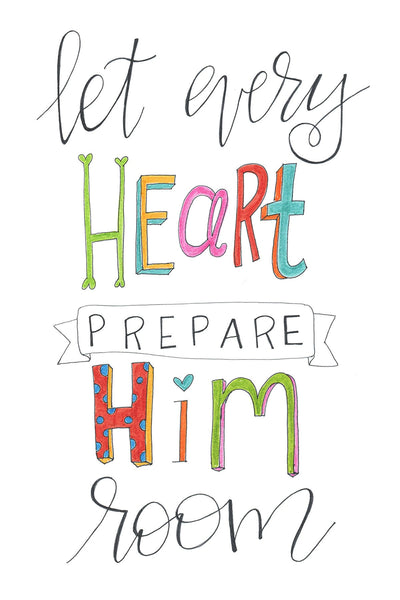 let every
HEaRt
PREPARE
Him
room